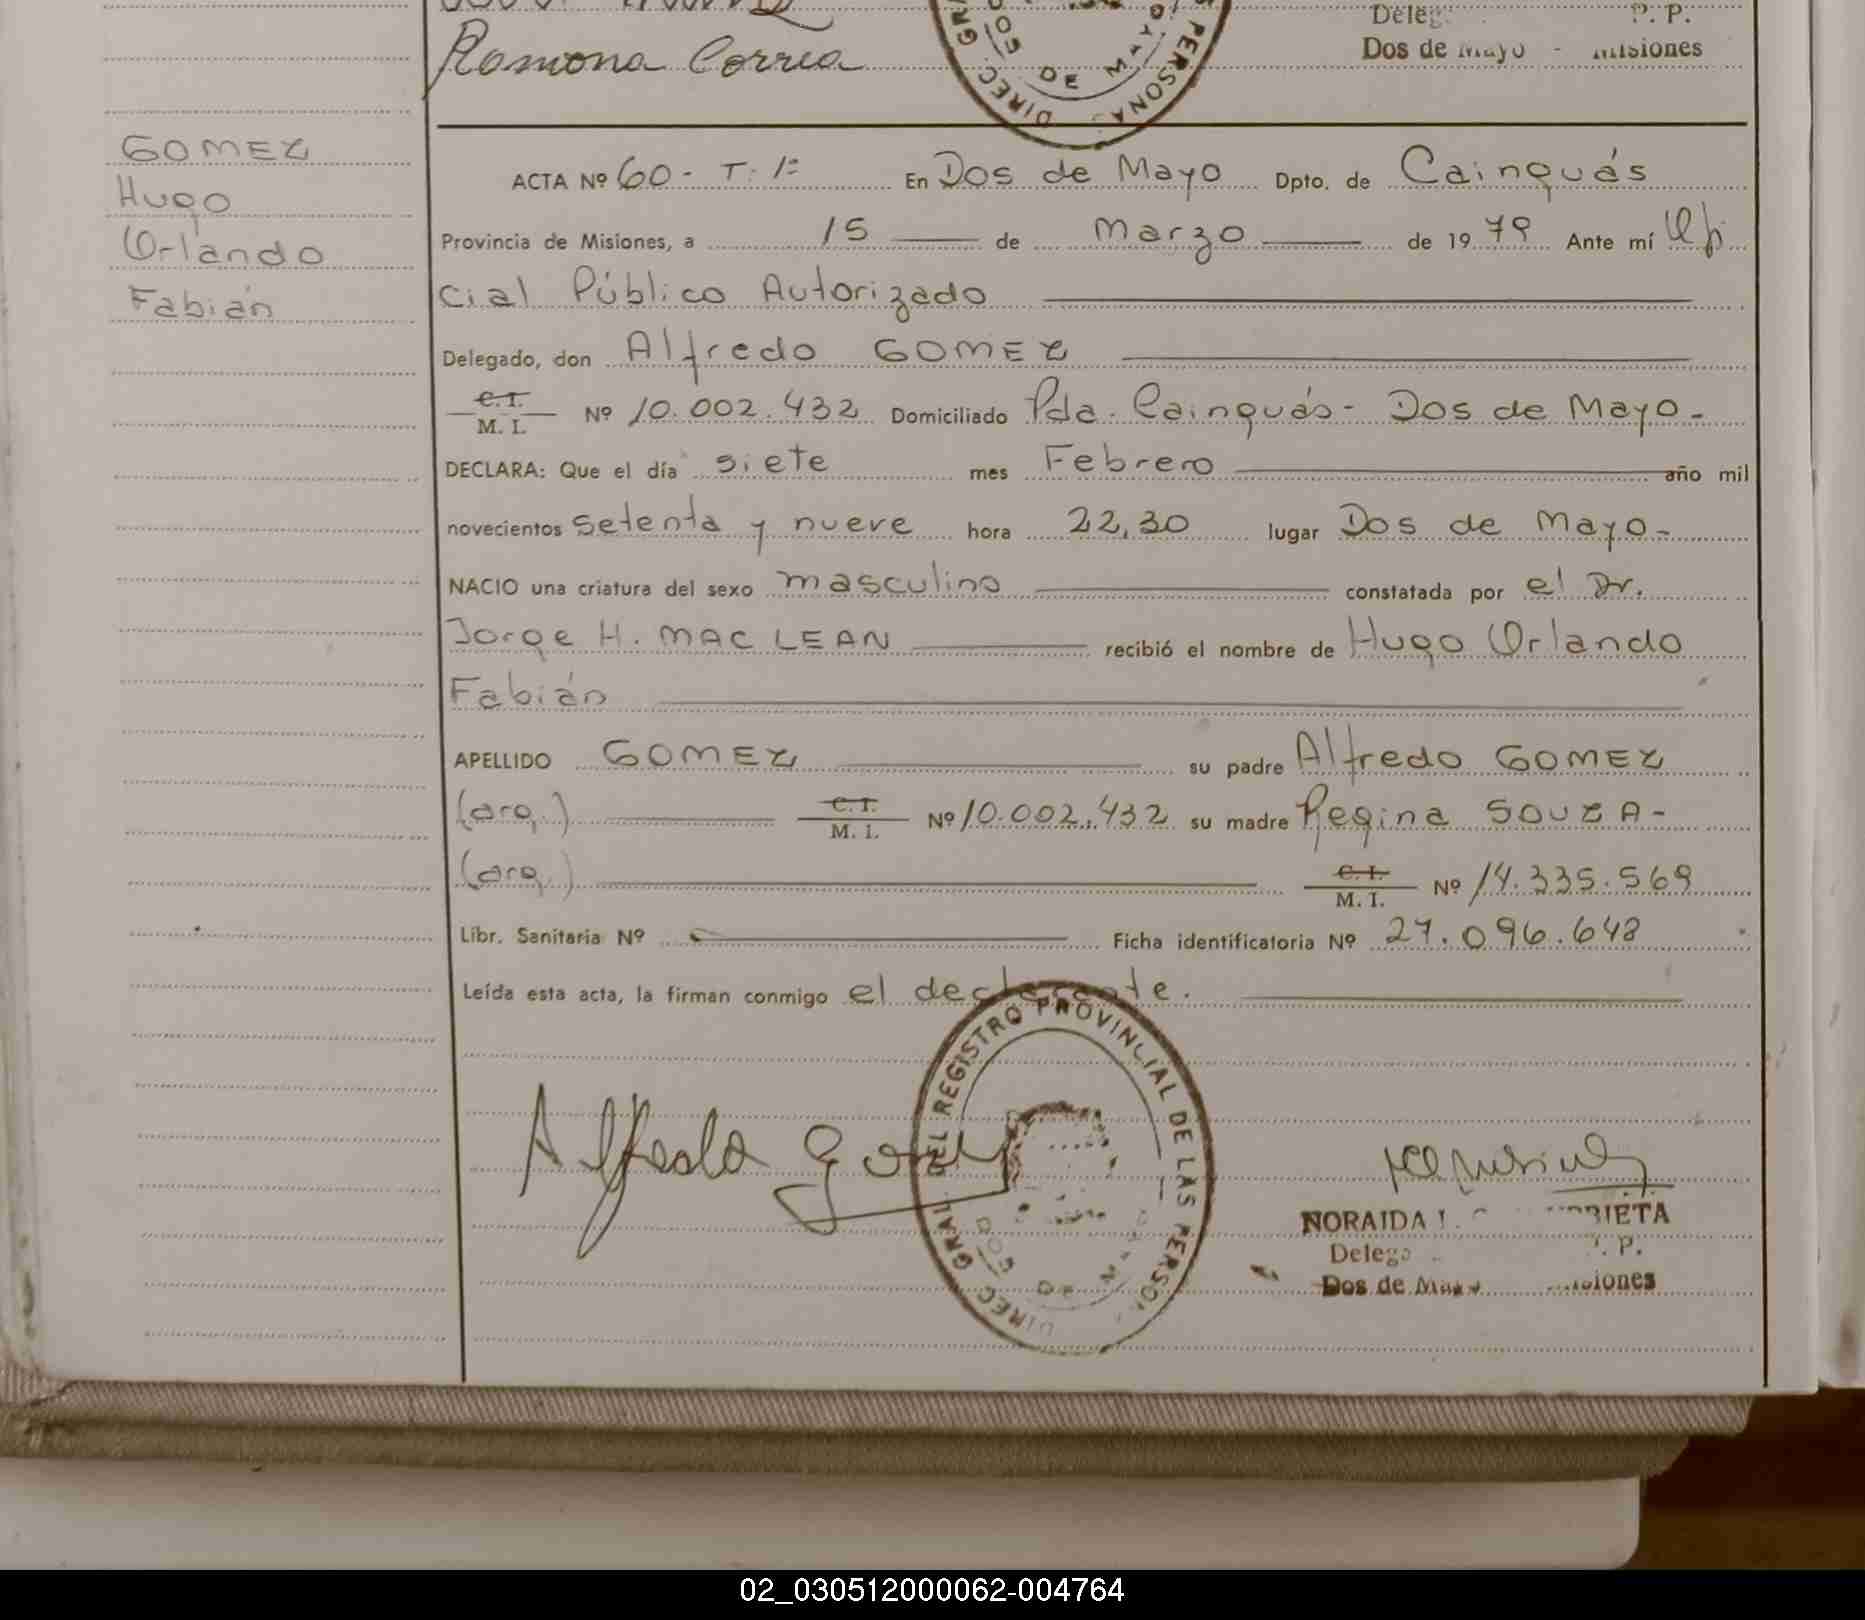 Ramona Correa
Dos de Mayo - Misiones
DIREC. GRAL. PERSONAS
DOS DE MAYO
GOMEZ
Hugo
Orlando
Fabián
ACTA Nº 60 - T: 1º En Dos de Mayo Dpto. de Cainguás
Provincia de Misiones, a 15 de Marzo de 1979 Ante mí Ofi
cial Público Autorizado
Delegado, don Alfredo GOMEZ
C.I.
M. I. Nº 10.002.432 Domiciliado Pda. Cainguás - Dos de Mayo -
DECLARA: Que el día siete mes Febrero año mil
novecientos setenta y nueve hora 22,30 lugar Dos de Mayo -
NACIO una criatura del sexo masculino constatada por el Dr.
Jorge H. MAC LEAN recibió el nombre de Hugo Orlando
Fabián
APELLIDO GOMEZ su padre Alfredo GOMEZ
(arg.) C.I.
M. I. Nº 10.002.432 su madre Regina SOUZA -
(arg.) C.I.
M. I. Nº 14.335.569
Libr. Sanitaria Nº Ficha identificatoria Nº 27.096.648
Leída esta acta, la firman conmigo el declarante.
DIREC. GRAL. DEL REGISTRO PROVINCIAL DE LAS PERSO
DOS DE MAYO
Alfredo Gomez
NORAIDA
Dos de Mayo Misiones
02_030512000062-004764